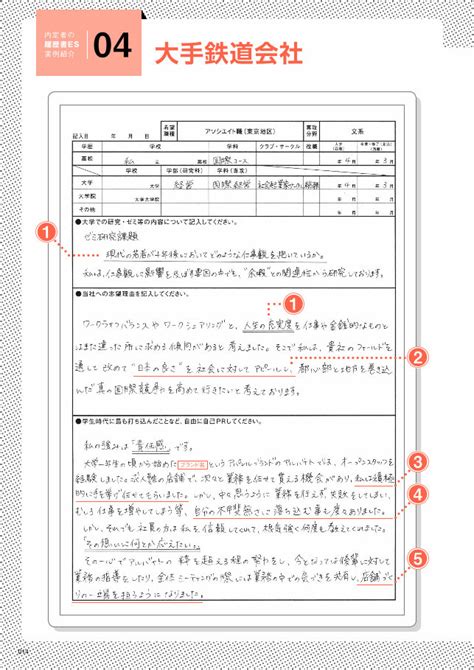 内定者の
履歴書ES
実例紹介
04
大手鉄道会社
記入日 年 月 日
希望職種 アソシエイト職（東京地区） 専攻分野 文系
学歴 学校 学科 クラブ・サークル 役職
高校 私立 高校 国際コース 年4月 年3月
学校 学部（研究科） 学科（専攻）
大学 大学 経営 国際経営 年4月 年3月
大学院 大学大学院 年 月 年 月
その他 年 月 年 月
●大学での研究・ゼミ等の内容について記入してください。
ゼミ研究課題
1
現代の若者が4年後においてどのような仕事観を抱いているか。
私は、仕事観に影響を及ぼす要因の中でも、"余暇"との関連性から研究しております。
●当社への志望理由を記入してください。
1
ワークライフバランスやワークシェアリングと、人生の充実度を仕事や金銭的なものと
はまた違った所に求める傾向があると考えました。そこで私は、貴社のフィールドを
2
通して改めて"日本の良さ"を社会に対してアピールし、都心部と地方を巻き込
んだ真の国際競争力を高めて行きたいと考えております。
●学生時代に最も打ち込んだことなど、自由に自己PRしてください。
私の強みは「責任感」です。
大学一年生の頃から始めた ブランド名 というアパレルブランドのアルバイトでは、オープンスタッフを
3
経験しました。求人数の店舗で、次々と業務を任せて貰える機会があり、私は積極
的に手を挙げ任せてもらいました。しかし、中々思うように業務を任えず失敗をしてしまい、
4
むしろ仕事を増やしてしまう等、自分の不甲斐無さに落ち込む事も度々ありました。
しかし、それでも社員の方は私を信頼してくれて、根気強く何度も教えてくれました。
「その想いに何とか応えたい。」
その一心でアルバイトの枠を超える程の努力をし、今となっては後輩に対して
5
業務の指導をしたり、全体ミーティングの際には業務の中での気づきを共有し、店舗づく
りの一端を担うようになりました。
014